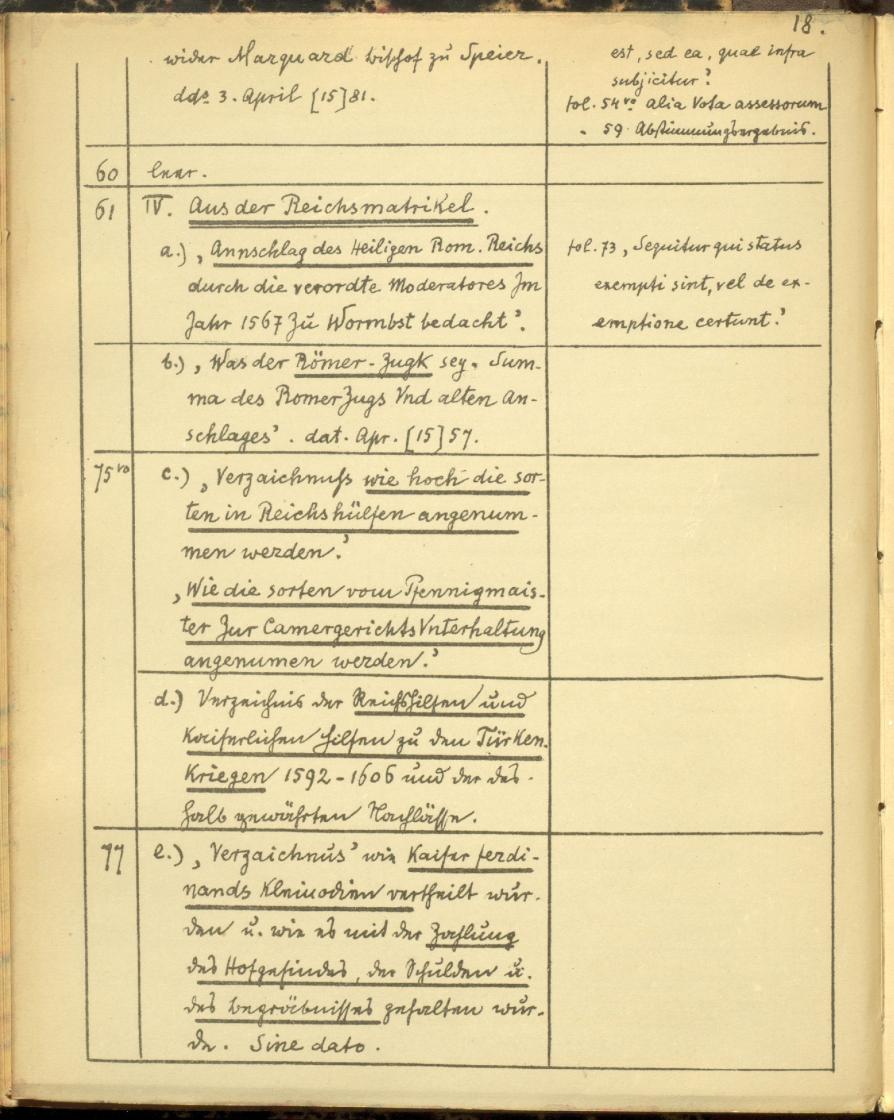 18.
wider Marquard bischof zu Speier.
ddo 3. April [15]81.
est, sed ea, quae infra
subjicitur?
fol. 54vo alia Vota assessorum
" 59 Abstimmungsergebnis.
60 leer.
61 IV. Aus der Reichsmatrikel.
a.) ‚Annschlag des Heiligen Rom. Reichs
durch die verordte Moderatores Jm
Jahr 1567 Zu Wormbst bedacht'.
fol. 73, Sequitur qui status
exempti sint, vel de ex-
emptione certunt.'
b.) ‚Was der Römer-Zugk sey. Sum-
ma des RomerZugs Vnd alten An-
schlages'. dat. Apr. [15]57.
75vo c.) ‚Verzaichnuss wie hoch die sor-
ten in Reichshülfen angenum-
men werden.'
‚Wie die sorten vom Pfennigmais-
ter Zur Camergerichts Vnterhaltung
angenumen werden.'
d.) Verzeichnis der Reichshilfen und
Kaiserlichen Hilfen zu den Türken-
Kriegen 1592-1606 und der des-
halb gewährten Nachlässe.
77 e.) ‚Verzaichnüs' wie Kaiser Ferdi-
nands Kleinodien vertheilt wur-
den u. wie es mit der Zahlung
des Hofgesindes, der Schulden u.
des begräbnisses gehalten wur-
de. Sine dato.